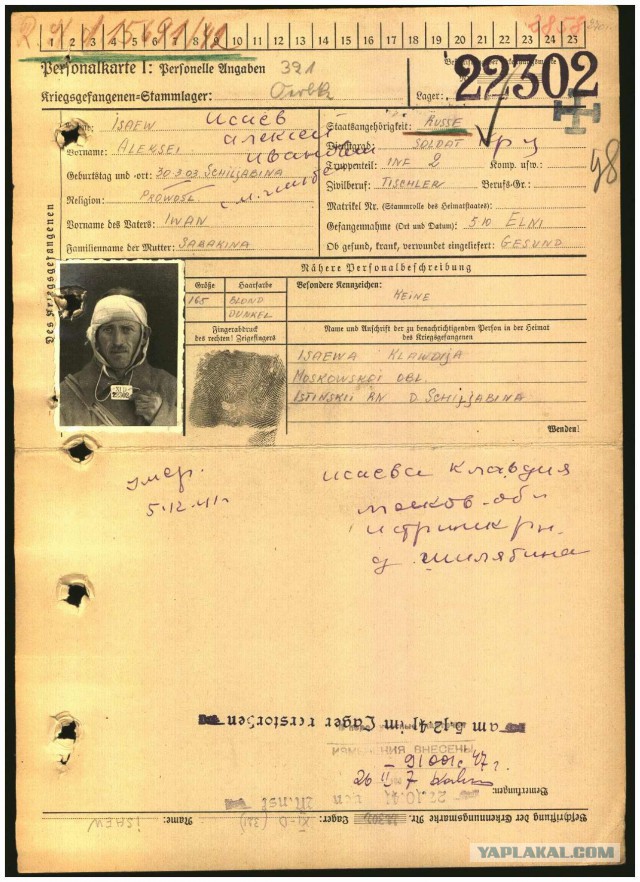 R. № A 15691/42
38.58
1 2 3 4 5 6 7 8 9 10 11 12 13 14 15 16 17 18 19 20 21 22 23
Personalkarte I: Personelle Angaben 321
Kriegsgefangenen-Stammlager:
Lager: 22302
Des Kriegsgefangenen
ISAEW Исаев
Vorname: ALEKSEI Алексей
Иванович
Geburtstag und -ort: 30.3.03. SCHILJABINA
Religion: PROWOSL.
Vorname des Vaters: IWAN
Familienname der Mutter: SABAKINA
Staatsangehörigkeit: RUSSE
Dienstgrad: SOLDAT
Truppenteil: INF 2 Komp. usw.:
Zivilberuf: TISCHLER Berufs-Gr.:
Matrikel Nr. (Stammrolle des Heimatstaates):
Gefangennahme (Ort und Datum): 510 ELNI
Ob gesund, krank, verwundet eingeliefert: GESUND
98
Nähere Personalbeschreibung
Größe Haarfarbe
165 BLOND
DUNKEL
Besondere Kennzeichen:
KEINE
Fingerabdruck
des rechten! Zeigefingers
Name und Anschrift der zu benachrichtigenden Person in der Heimat
des Kriegsgefangenen
ISAEWA KLAWDIJA
MOSKOWSKOI OBL.
ISTINSKII RN D SCHILJABINA
Wenden!
умер.
5.12.41г
Исаева Клавдия
Москов. обл
Истринск рн.
д. Шилябина
am 5.12.41 im Lager verstorben
ИЗМЕНЕНИЯ ВНЕСЕНЫ
Bemerkungen:
Beschriftung der Erkennungsmarke Nr. Lager: XI-D (321) Name: ISAEW
YAPLAKAL.COM